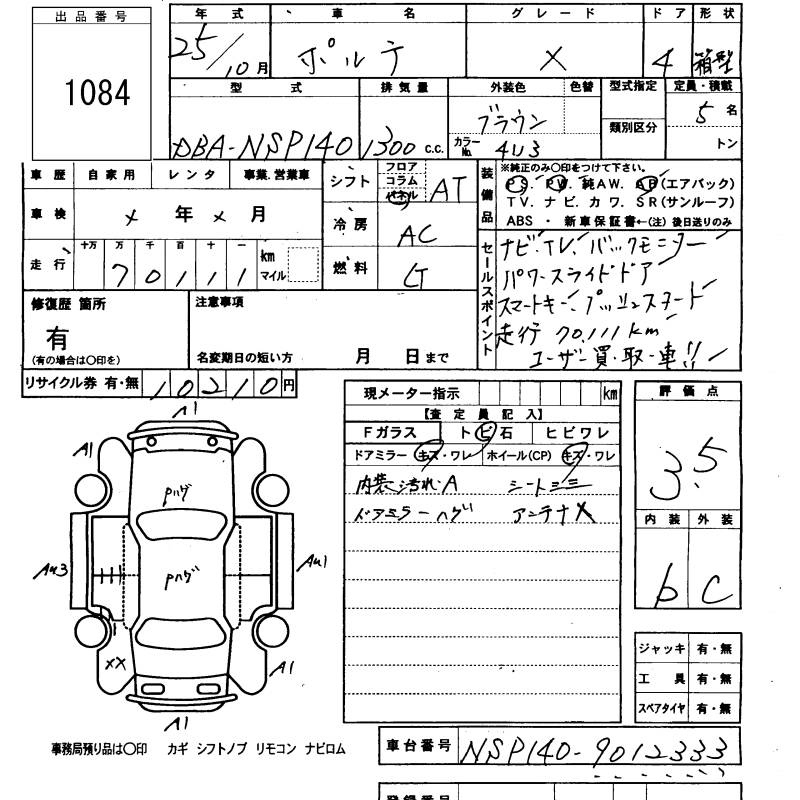 出品番号
1084
年式 車名 グレード ドア 形状
25/10月 ポルテ X 4 箱型
型式 排気量 外装色 色替 型式指定 定員・積載
DBA-NSP140 1300c.c. ブラウン 5名
カラーNo. 4U3 類別区分 トン
車歴 自家用 レンタ 事業.営業車
車検 年 月
走行 十万 万 千 百 十 一 km マイル
70111
シフト フロア コラム パネル AT
冷房 AC
燃料
装備品
※純正のみ〇印をつけて下さい。
PS. PW. 純AW. AB(エアバック)
TV. ナビ. カワ. SR(サンルーフ)
ABS ・ 新車保証書←(注) 後日送りのみ
セールスポイント
ナビ.TV. バックモニター
パワースライドドア
スマートキー. プッシュスタート
走行 70,111km
ユーザー買・取・車!!
修復歴 箇所
有
(有の場合は〇印を)
注意事項
名変期日の短い方 月 日まで
リサイクル券 有・無 10210円
現メーター指示 km
【査定員記入】
Fガラス トビ石 ヒビワレ
ドアミラー キズ・ワレ ホイール(CP) キズ・ワレ
内装汚れA シートシミ
ドアミラーハゲ アンテナX
評価点
3.5
内装 外装
b C
A1
A1
Pハゲ
Au3
Au1
Pハゲ
XX
A1
A1
ジャッキ 有・無
工具 有・無
スペアタイヤ 有・無
事務局預り品は〇印 カギ シフトノブ リモコン ナビロム
車台番号 NSP140-9012333
登録番号